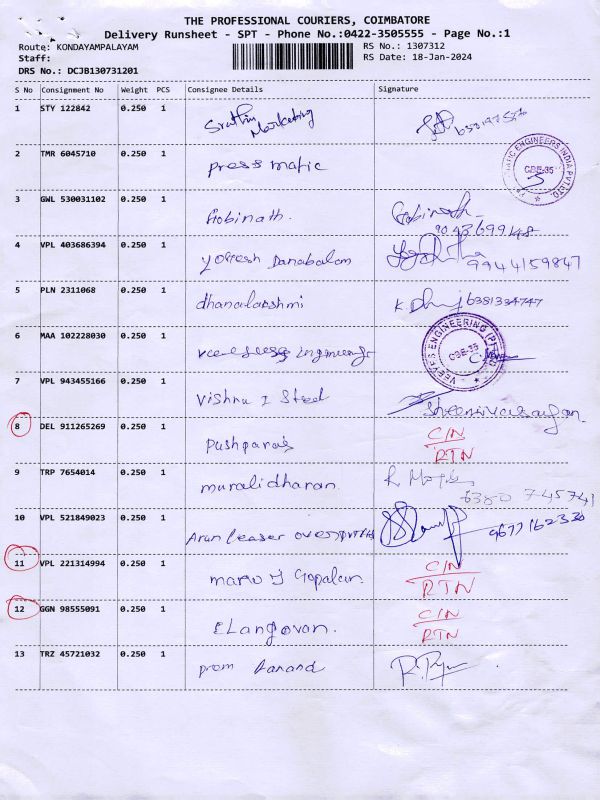 THE PROFESSIONAL COURIERS, COIMBATORE
Delivery Runsheet - SPT - Phone No.:0422-3505555 - Page No.:1
Route: KONDAYAMPALAYAM RS No.: 1307312
Staff: RS Date: 18-Jan-2024
DRS No.: DCJB130731201
S No Consignment No Weight PCS Consignee Details Signature
1 STY 122842 0.250 1 Marketing
2 TMR 6045710 0.250 1 press matic ENGINEERS INDIA PVT LTD. CBE-35
3 GWL 530031102 0.250 1 Gobinath. Gobinath
9043699148
4 VPL 403686394 0.250 1 Yogesh Danabalam
9944159847
5 PLN 2311068 0.250 1 dhanalakshmi 6381334747
6 MAA 102228030 0.250 1 VEEVES ENGINEERING (P) CBE-35
7 VPL 943455166 0.250 1 Vishnu I Steel
8 DEL 911265269 0.250 1 Pushparaj C/N
RTN
9 TRP 7654014 0.250 1 muralidharan.
6380 745741
10 VPL 521849023 0.250 1 Arun 9677162330
11 VPL 221314994 0.250 1 Gopalan. C/N
RTN
12 GGN 98555091 0.250 1 Elangovan. C/N
RTN
13 TRZ 45721032 0.250 1 prem Aanand